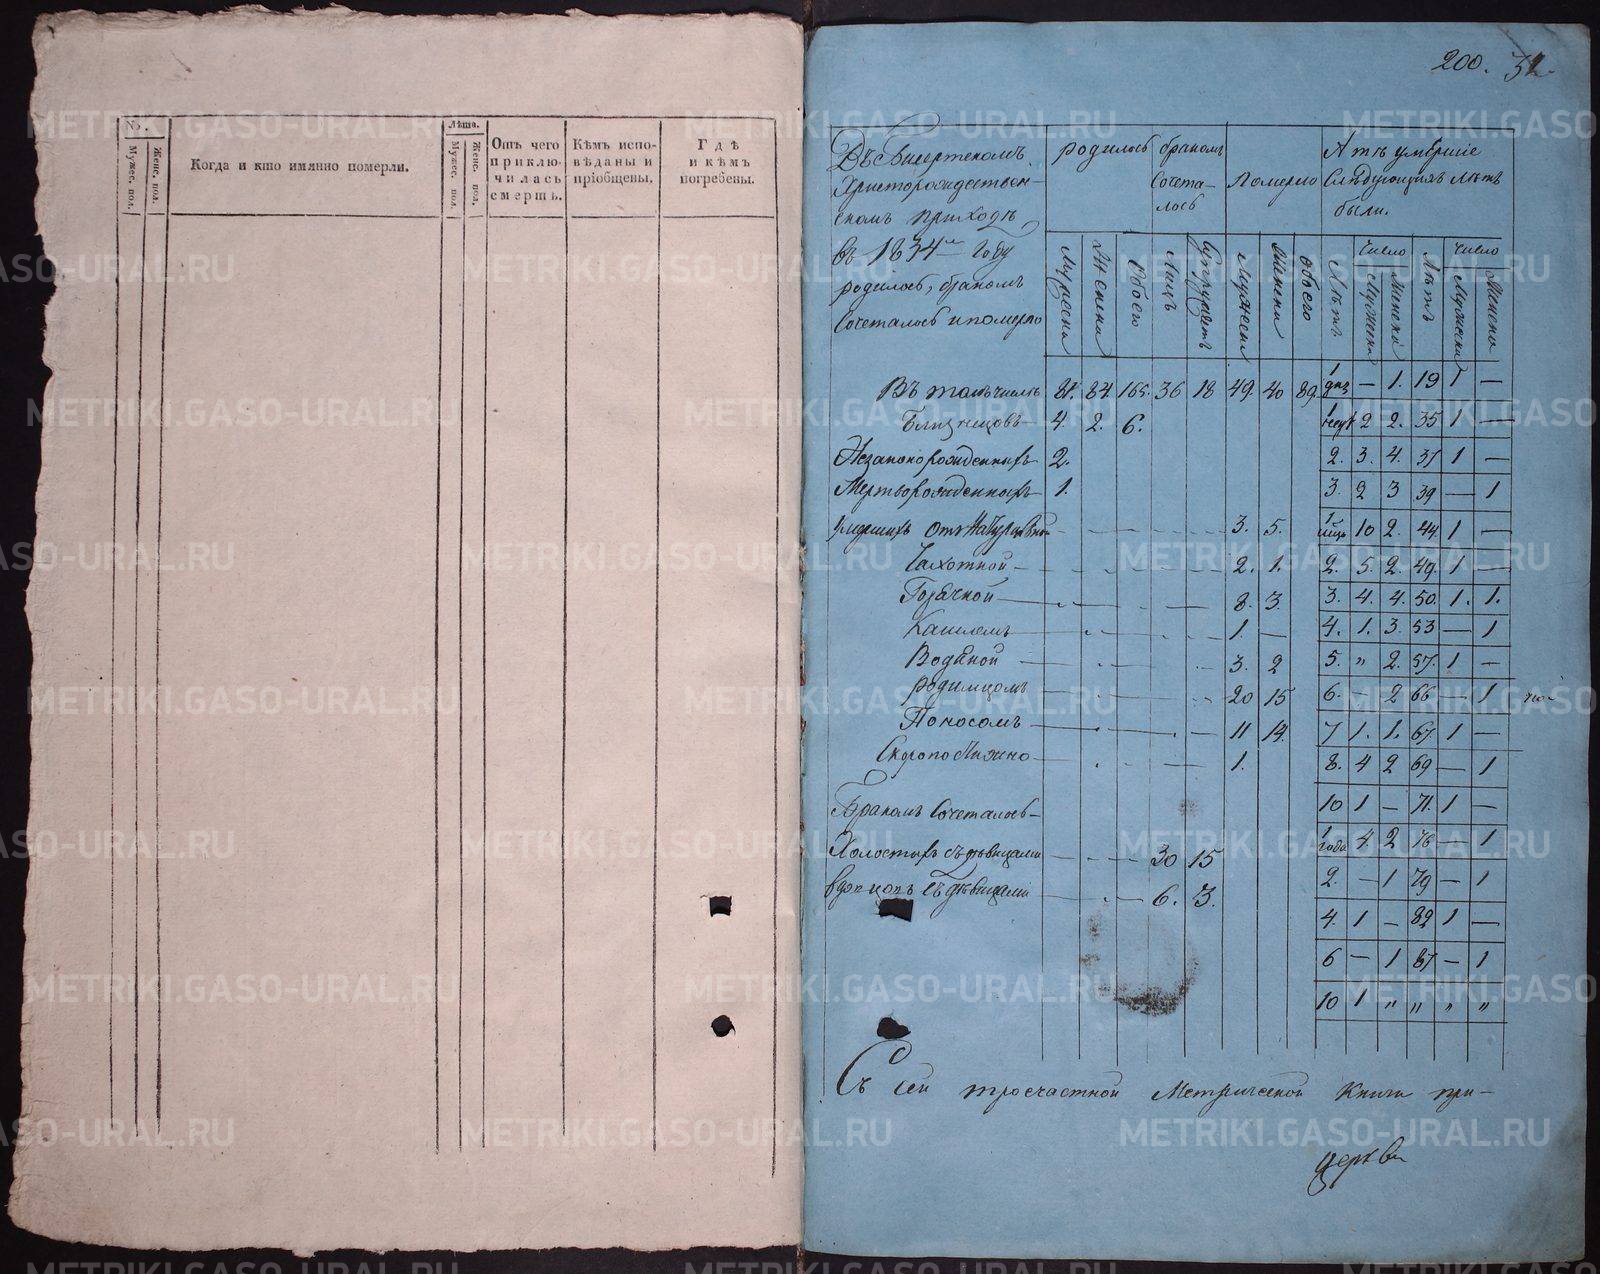 №.
Мужес. пол.
Женс. пол.
Когда и кто имянно померли.
Лѣта.
Мужес. пол.
Женс. пол.
Отъ чего
приклю-
чилась
смерть.
Кѣмъ испо-
вѣданы и
прiобщены.
Гдѣ
и кѣмъ
погребены.
200. 32.
Въ Висертскомъ
Христорождествен-
скомъ приходѣ
въ 1834м году
родилось, бракомъ
сочеталось и померло
родилось
бракомъ
сочета-
лось
померло
А тѣ умершiе
слѣдующихъ лѣтъ
были.
Мужеска Женска Обоего Лицъ Супружествъ Мужеска Женска Обоего Лѣтъ
Число
Мужеска Женска
Лѣтъ
Число
Мужеска Женска
Въ томъ числѣ 81. 84. 165. 36 18 49. 40 89. 1 дня — 1. 19 1 —
Близнецовъ 4. 2. 6. 1 нед. 2 2. 35 1 —
Незаконорожденныхъ 2. 2. 3. 4. 37 1 —
Мертворожденныхъ 1. 3. 2 3 39 — 1
Умершихъ отъ 3. 5. 1 мѣць 10 2. 44. 1 —
Чахотной — 2. 1. 2. 5. 2. 49. 1 —
Горячкой — 8. 3. 3. 4. 4. 50 1. 1.
Кашлемъ 1. — 4. 1. 3. 53 — 1
Водяной — 3. 2 5. " 2. 57. 1 —
Родимцомъ 20 15 6. — 2 66 — 1
Поносомъ — 11 14. 7 1. 1. 67. 1 —
Скоропостижно — 1. 8. 4 2 69 — 1
10 1 — 71. 1 —
Бракомъ сочеталось — 1 года 4. 2 76 — 1
Холостыхъ съ дѣвицами — 30 15 2. — 1 79 — 1
вдовцовъ съ дѣвицами — 6. 3. 4. 1 — 82 1 —
6 — 1 87 — 1
10 1 " " " "
Съ сей тросчастной Метрической Книги при-
церкви
METRIKI.GASO-URAL.RU